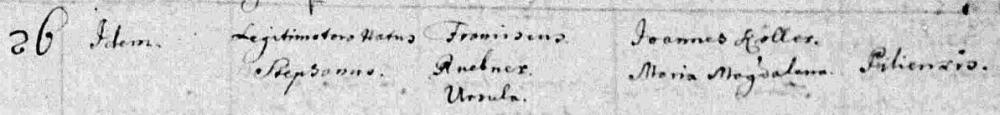 26 Idem. Legitimotoro Natus Francisus. Joannes Koller.
Stephanus. Ruebner. Maria Magdalena. Piliensis.
Ursula.